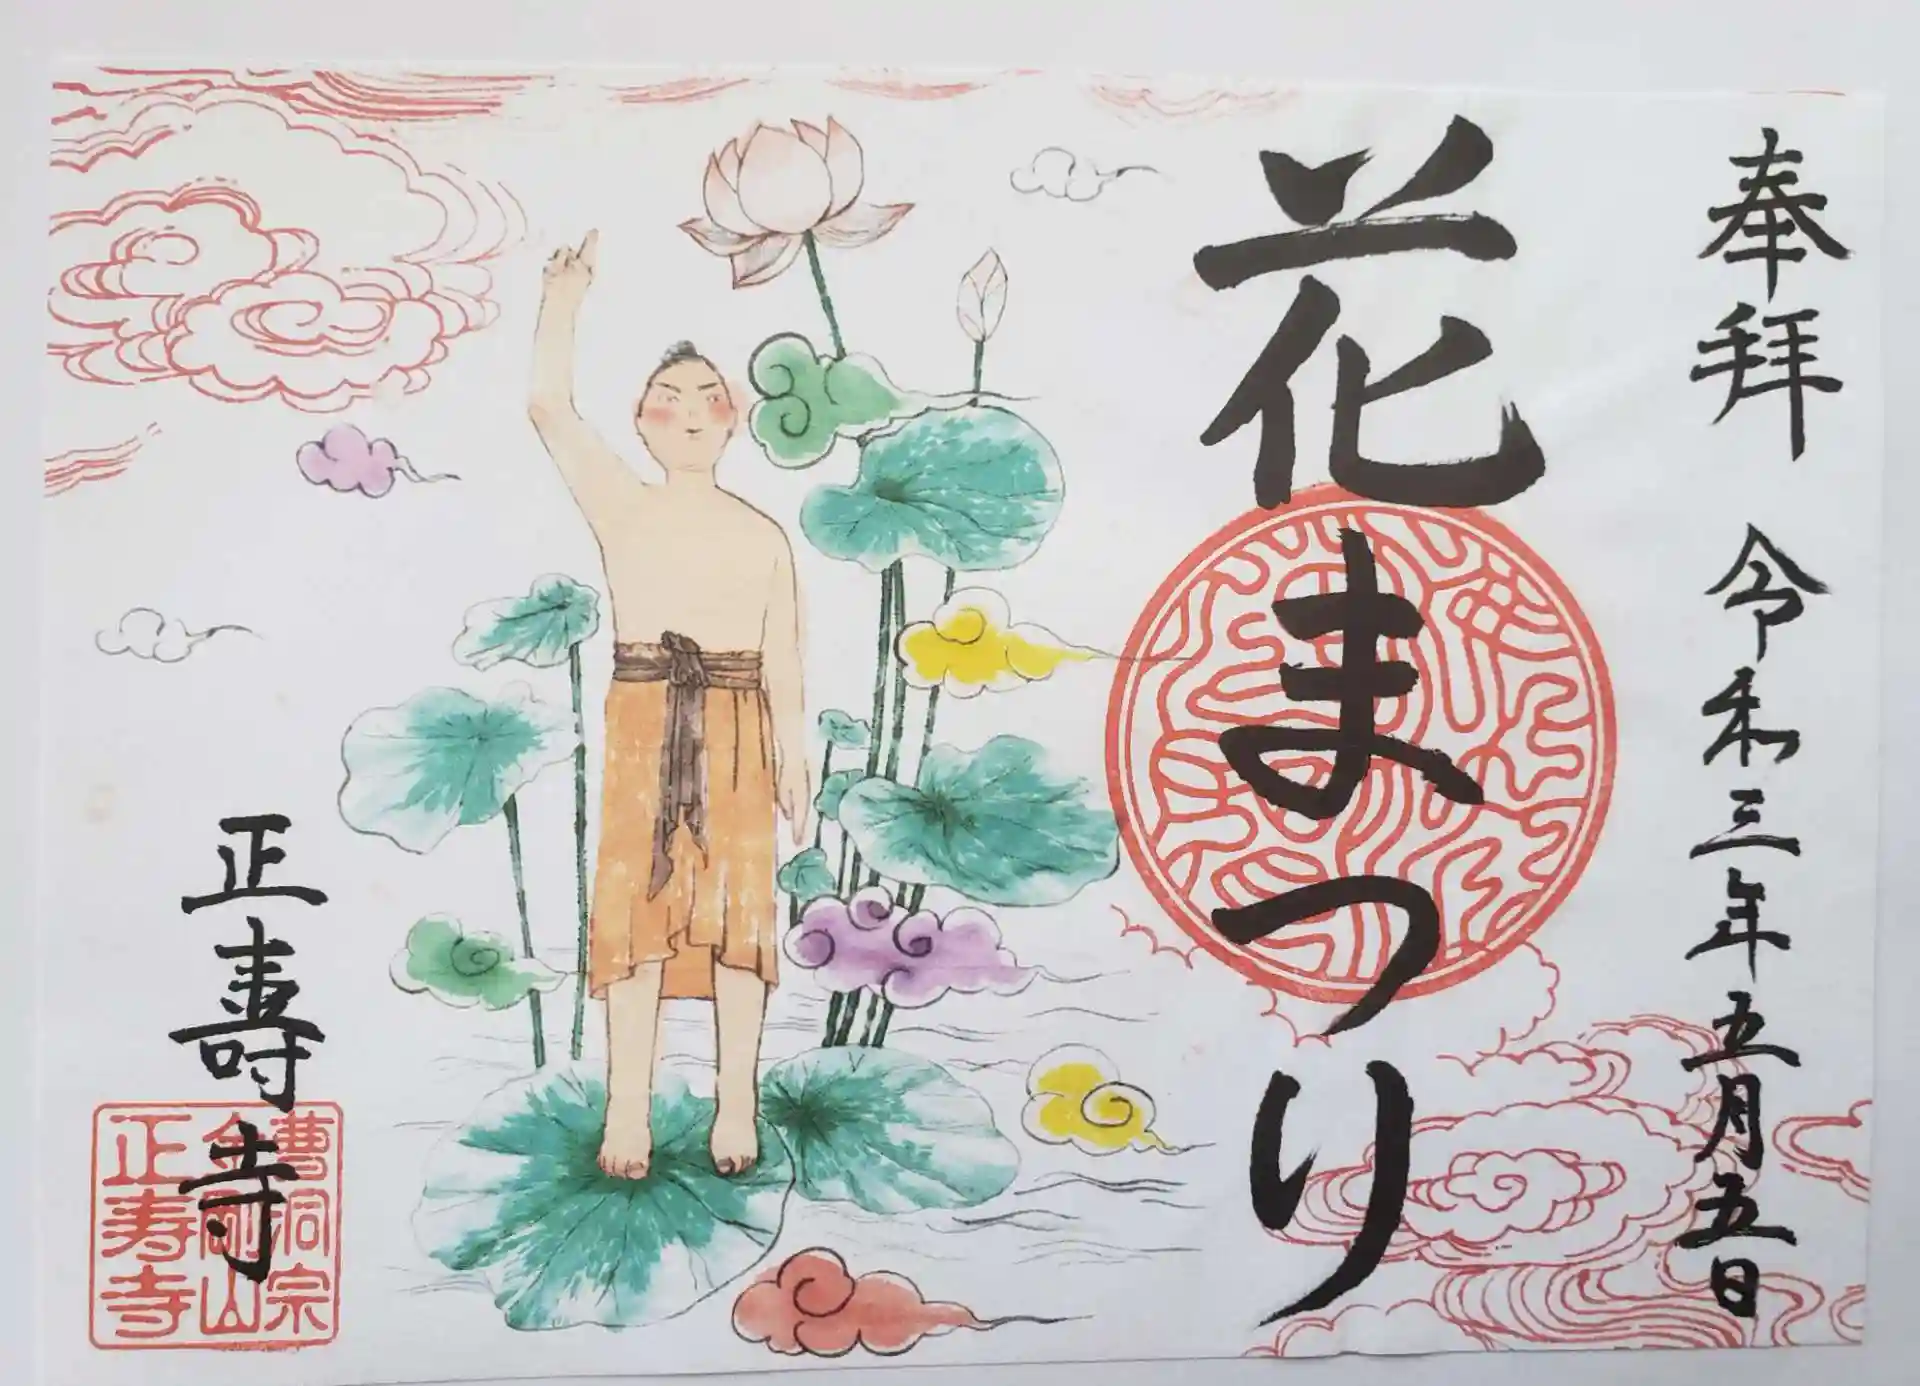 奉拝 令和三年五月五日
花まつり
正壽寺
曹洞宗
金剛山
正寿寺